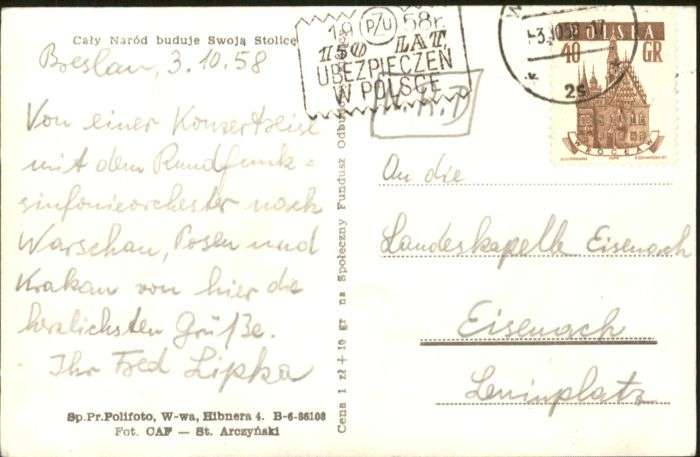 Cały Naród buduje Swoją Stolicę
Breslau, 3.10.58
Von einer Konzertreise
mit dem Rundfunk=
sinfonieorchester nach
Warschau, Posen und
Krakau von hier die
herzlichsten Grüße.
Ihr Fred Lipka
Sp.Pr.Polifoto, W-wa, Hibnera 4. B-6-86108
Fot. CAF — St. Arczyński
Cena 1 zł + 10 gr na Społeczny Fundusz
PZU 58r.
150 LAT
UBEZPIECZEŃ
W POLSCE
-3.10.58-17
2s
POLSKA
40 GR
WROCŁAW
An die
Landeskapelle Eisenach
Eisenach
Leninplatz